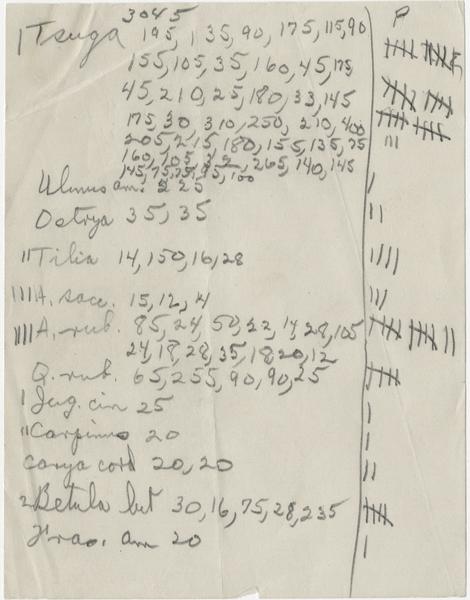 3045 P
| Tsuga 195, 135, 90, 175, 115, 90
155, 105, 35, 160, 45, 175
45, 210, 25, 180, 33, 145
175, 30, 310, 250, 210, 400
205, 215, 180, 155, 135, 75 |||
160, 105, 32, 265, 140, 145
145, 75, 75, 95, 100
Ulmus am. 225 |
Ostrya 35, 35 ||
|| Tilia 14, 150, 16, 28 ||||
|||| A. sacc. 15, 12, 4 |||
|||| A. rub. 85, 24, 50, 22, 14, 28, 105
24, 18, 28, 35, 18, 20, 12
Q. rub. 65, 255, 90, 90, 25
| Jug. cin 25 |
|| Carpinus 20 |
Carya cord 20, 20 ||
2 Betula lut 30, 16, 75, 28, 235
Frax. am 20 |